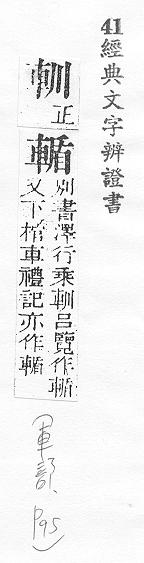 41 經典文字辨證書
䡅正
輴別書澤行乘䡅呂覽作輴
又下棺車禮記亦作輴
P95